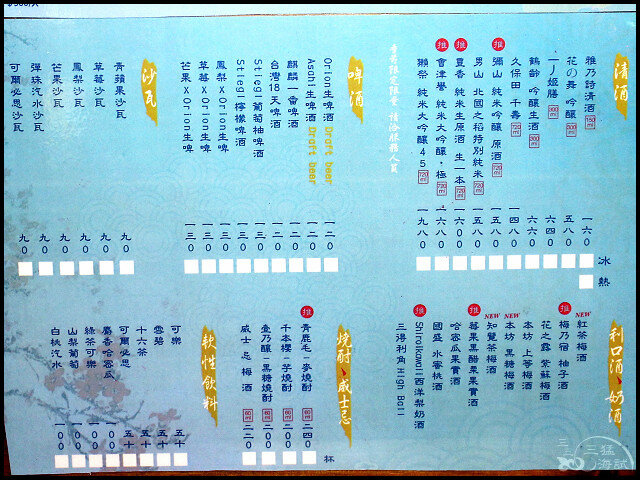 清酒
雅乃詩清酒 150ml 一六0
花の舞 吟釀 300ml 五八0
一ノ姬膳 300ml 六四0
鶴齡 吟釀生酒 300ml 六六0
久保田 千壽 720ml 一四八0
推 瀰山 純米吟釀 原酒 720ml 一五八0
男山 北國之稻特別純米 720ml 一五八0
推 豊香 純米生原酒 生一本 720ml 一六00
推 會津譽 純米大吟釀‧極 720ml 一六八0
獺祭 純米大吟釀45 720ml 一九八0
冰
熱
啤酒
Orion生啤酒 Draft beer 一二0
Asahi生啤酒 Draft beer 一二0
麒麟一番啤酒 一二0
台灣18天啤酒
Stiegl葡萄柚啤酒 一三0
Stiegl檸檬啤酒 一三0
鳳梨XOrion生啤 一三0
草莓XOrion生啤 一三0
芒果XOrion生啤 一三0
沙瓦
青蘋果沙瓦 九0
草莓沙瓦 九0
鳳梨沙瓦 九0
芒果沙瓦 九0
彈珠汽水沙瓦 九0
可爾必思沙瓦 九0
利口酒、奶酒
紅茶梅酒
推 梅乃宿 柚子酒
花之露 紫蘇梅酒
本坊 上等梅酒
本坊 黑糖梅酒 NEW
知覽茶梅酒 NEW
推 莓果黑醋栗果實酒
哈密瓜果實酒
國盛 水蜜桃酒
推 Shiroikawaii西洋梨奶酒
三得利角High Ball
燒酎、威士忌
推 青鹿毛-麥燒酎 60ml 二四0
千本櫻-芋燒酎 60ml 二00
壹乃釀-黑糖燒酎 60ml 二二0
威士忌 梅酒 60ml 二二0
杯
軟性飲料
可樂 五十
雪碧 五十
十六茶 五十
可爾必思 五十
麝香哈密瓜 一00
綠茶可樂 一00
山梨葡萄 一00
白桃汽水 一00
三猛海試